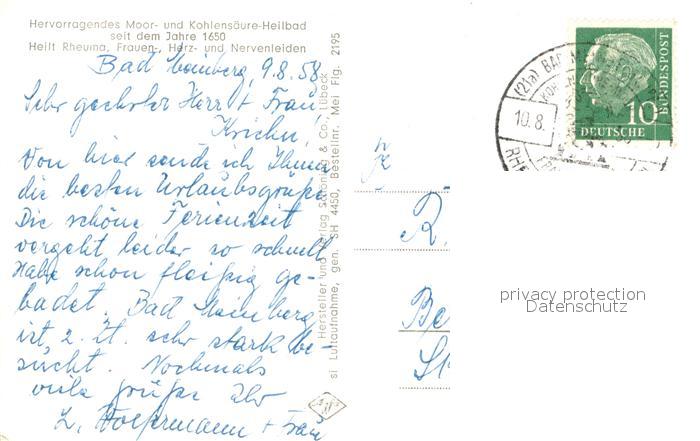 Hervorragendes Moor- und Kohlensäure-Heilbad
seit dem Jahre 1650
Heilt Rheuma, Frauen-, Herz- und Nervenleiden
Bad Meinberg, 9.8.58
Sehr geehrter Herr + Frau
Von hier sende ich Ihnen
die besten Urlaubsgrüße.
Die schöne Ferienzeit
vergeht leider so schnell.
Habe schon fleißig ge-
badet. Bad Meinberg
ist z. Zt. sehr stark be-
sucht. Nochmals
viele Grüße Ihr
+ Frau
Hersteller und Verlag & Co., Lübeck
si Luftaufnahme, gen. SH 4450, Bestellnr. Mei Flg. 2195
R.
Be
St
(21a) BAD
10.8.
RHE
10
DEUTSCHE
BUNDESPOST
privacy protection
Datenschutz